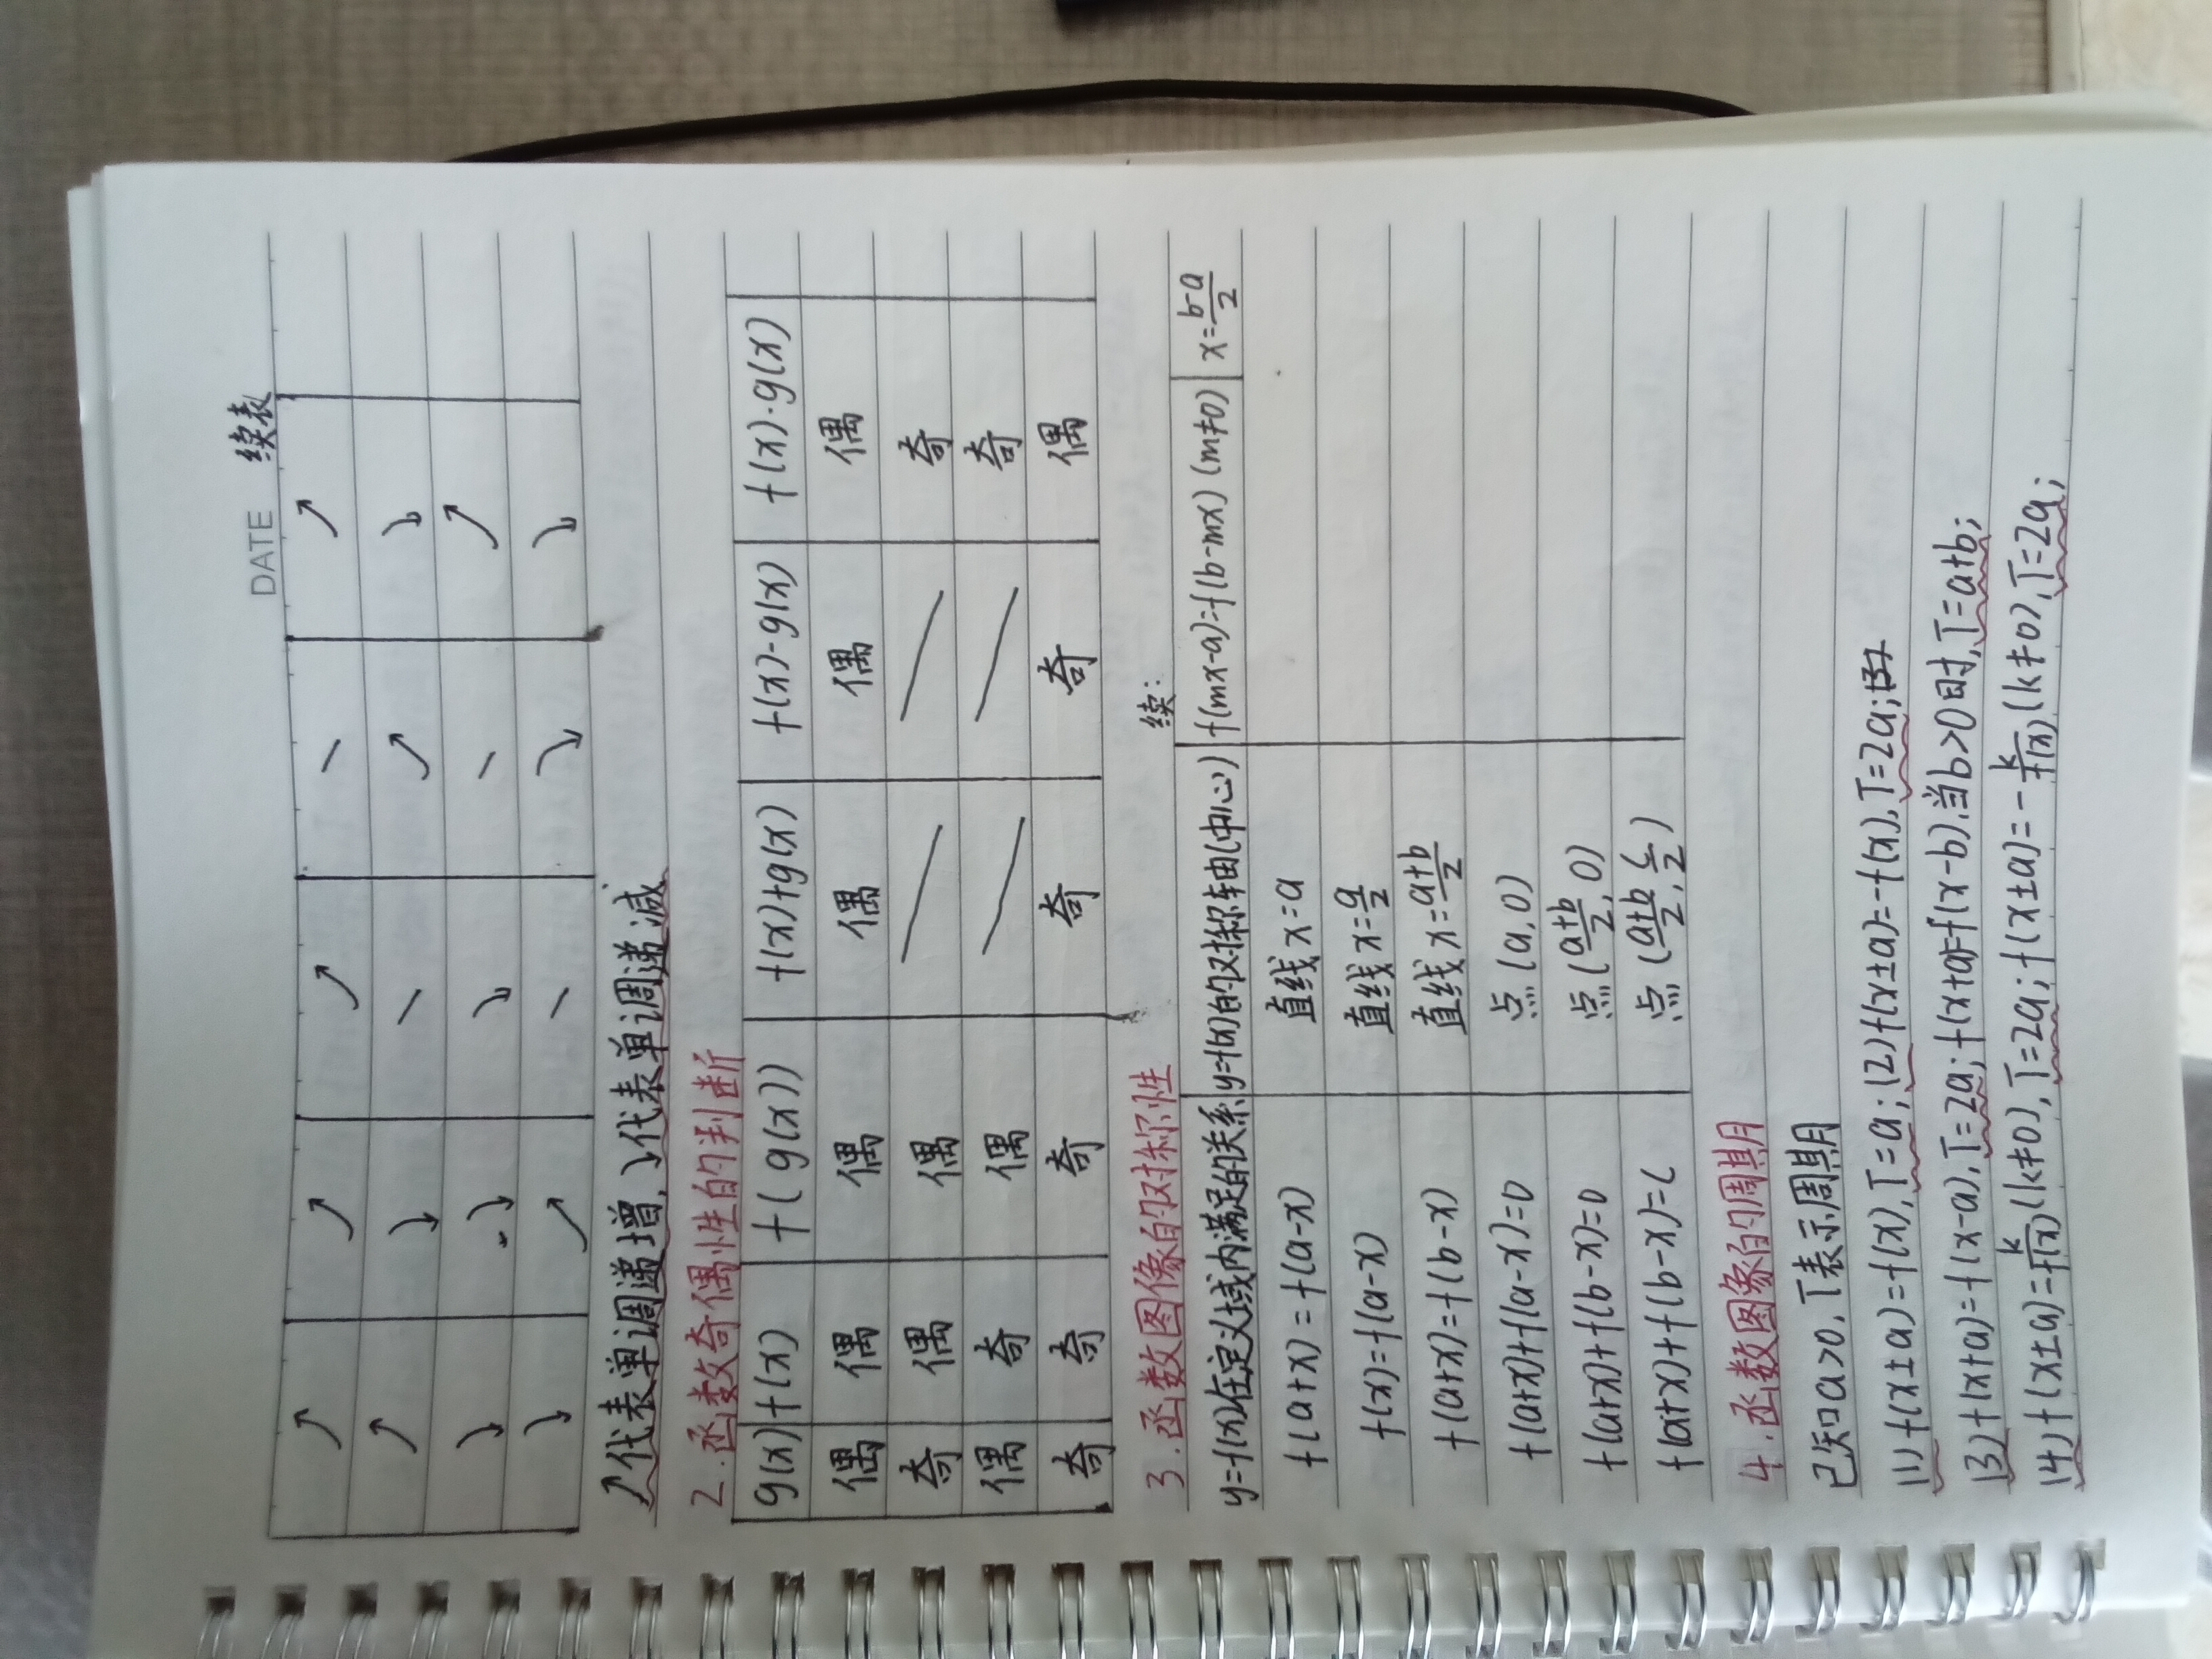 DATE 续表
↗ ↗ ↗ — ↗
↗ ↘ — ↗ ↘
↘ ↘ ↘ — ↗
↘ ↗ — ↘ ↘
↗代表单调递增,↘代表单调递减
2.函数奇偶性的判断
g(x) f(x) f(g(x)) f(x)+g(x) f(x)-g(x) f(x)·g(x)
偶 偶 偶 偶 偶 偶
奇 偶 偶 ╱ ╱ 奇
偶 奇 偶 ╱ ╱ 奇
奇 奇 奇 奇 奇 偶
3.函数图像的对称性 续:
y=f(x)在定义域内满足的关系 y=f(x)的对称轴(中心) f(mx-a)=f(b-mx) (m≠0) x=\frac{b-a}{2}
f(a+x)=f(a-x) 直线x=a
f(x)=f(a-x) 直线x=\frac{a}{2}
f(a+x)=f(b-x) 直线x=\frac{a+b}{2}
f(a+x)+f(a-x)=0 点(a,0)
f(a+x)+f(b-x)=0 点(\frac{a+b}{2},0)
f(a+x)+f(b-x)=c 点(\frac{a+b}{2},\frac{c}{2})
4.函数图象的周期
已知a>0,T表示周期
(1)f(x±a)=f(x),T=a;(2)f(x±a)=-f(x),T=2a;
(3)f(x+a)=f(x-a),T=2a;f(x+a)=f(x-b),当b>0时,T=a+b;
(4)f(x±a)=\frac{k}{f(x)}(k≠0),T=2a;f(x±a)=-\frac{k}{f(x)}(k≠0),T=2a;